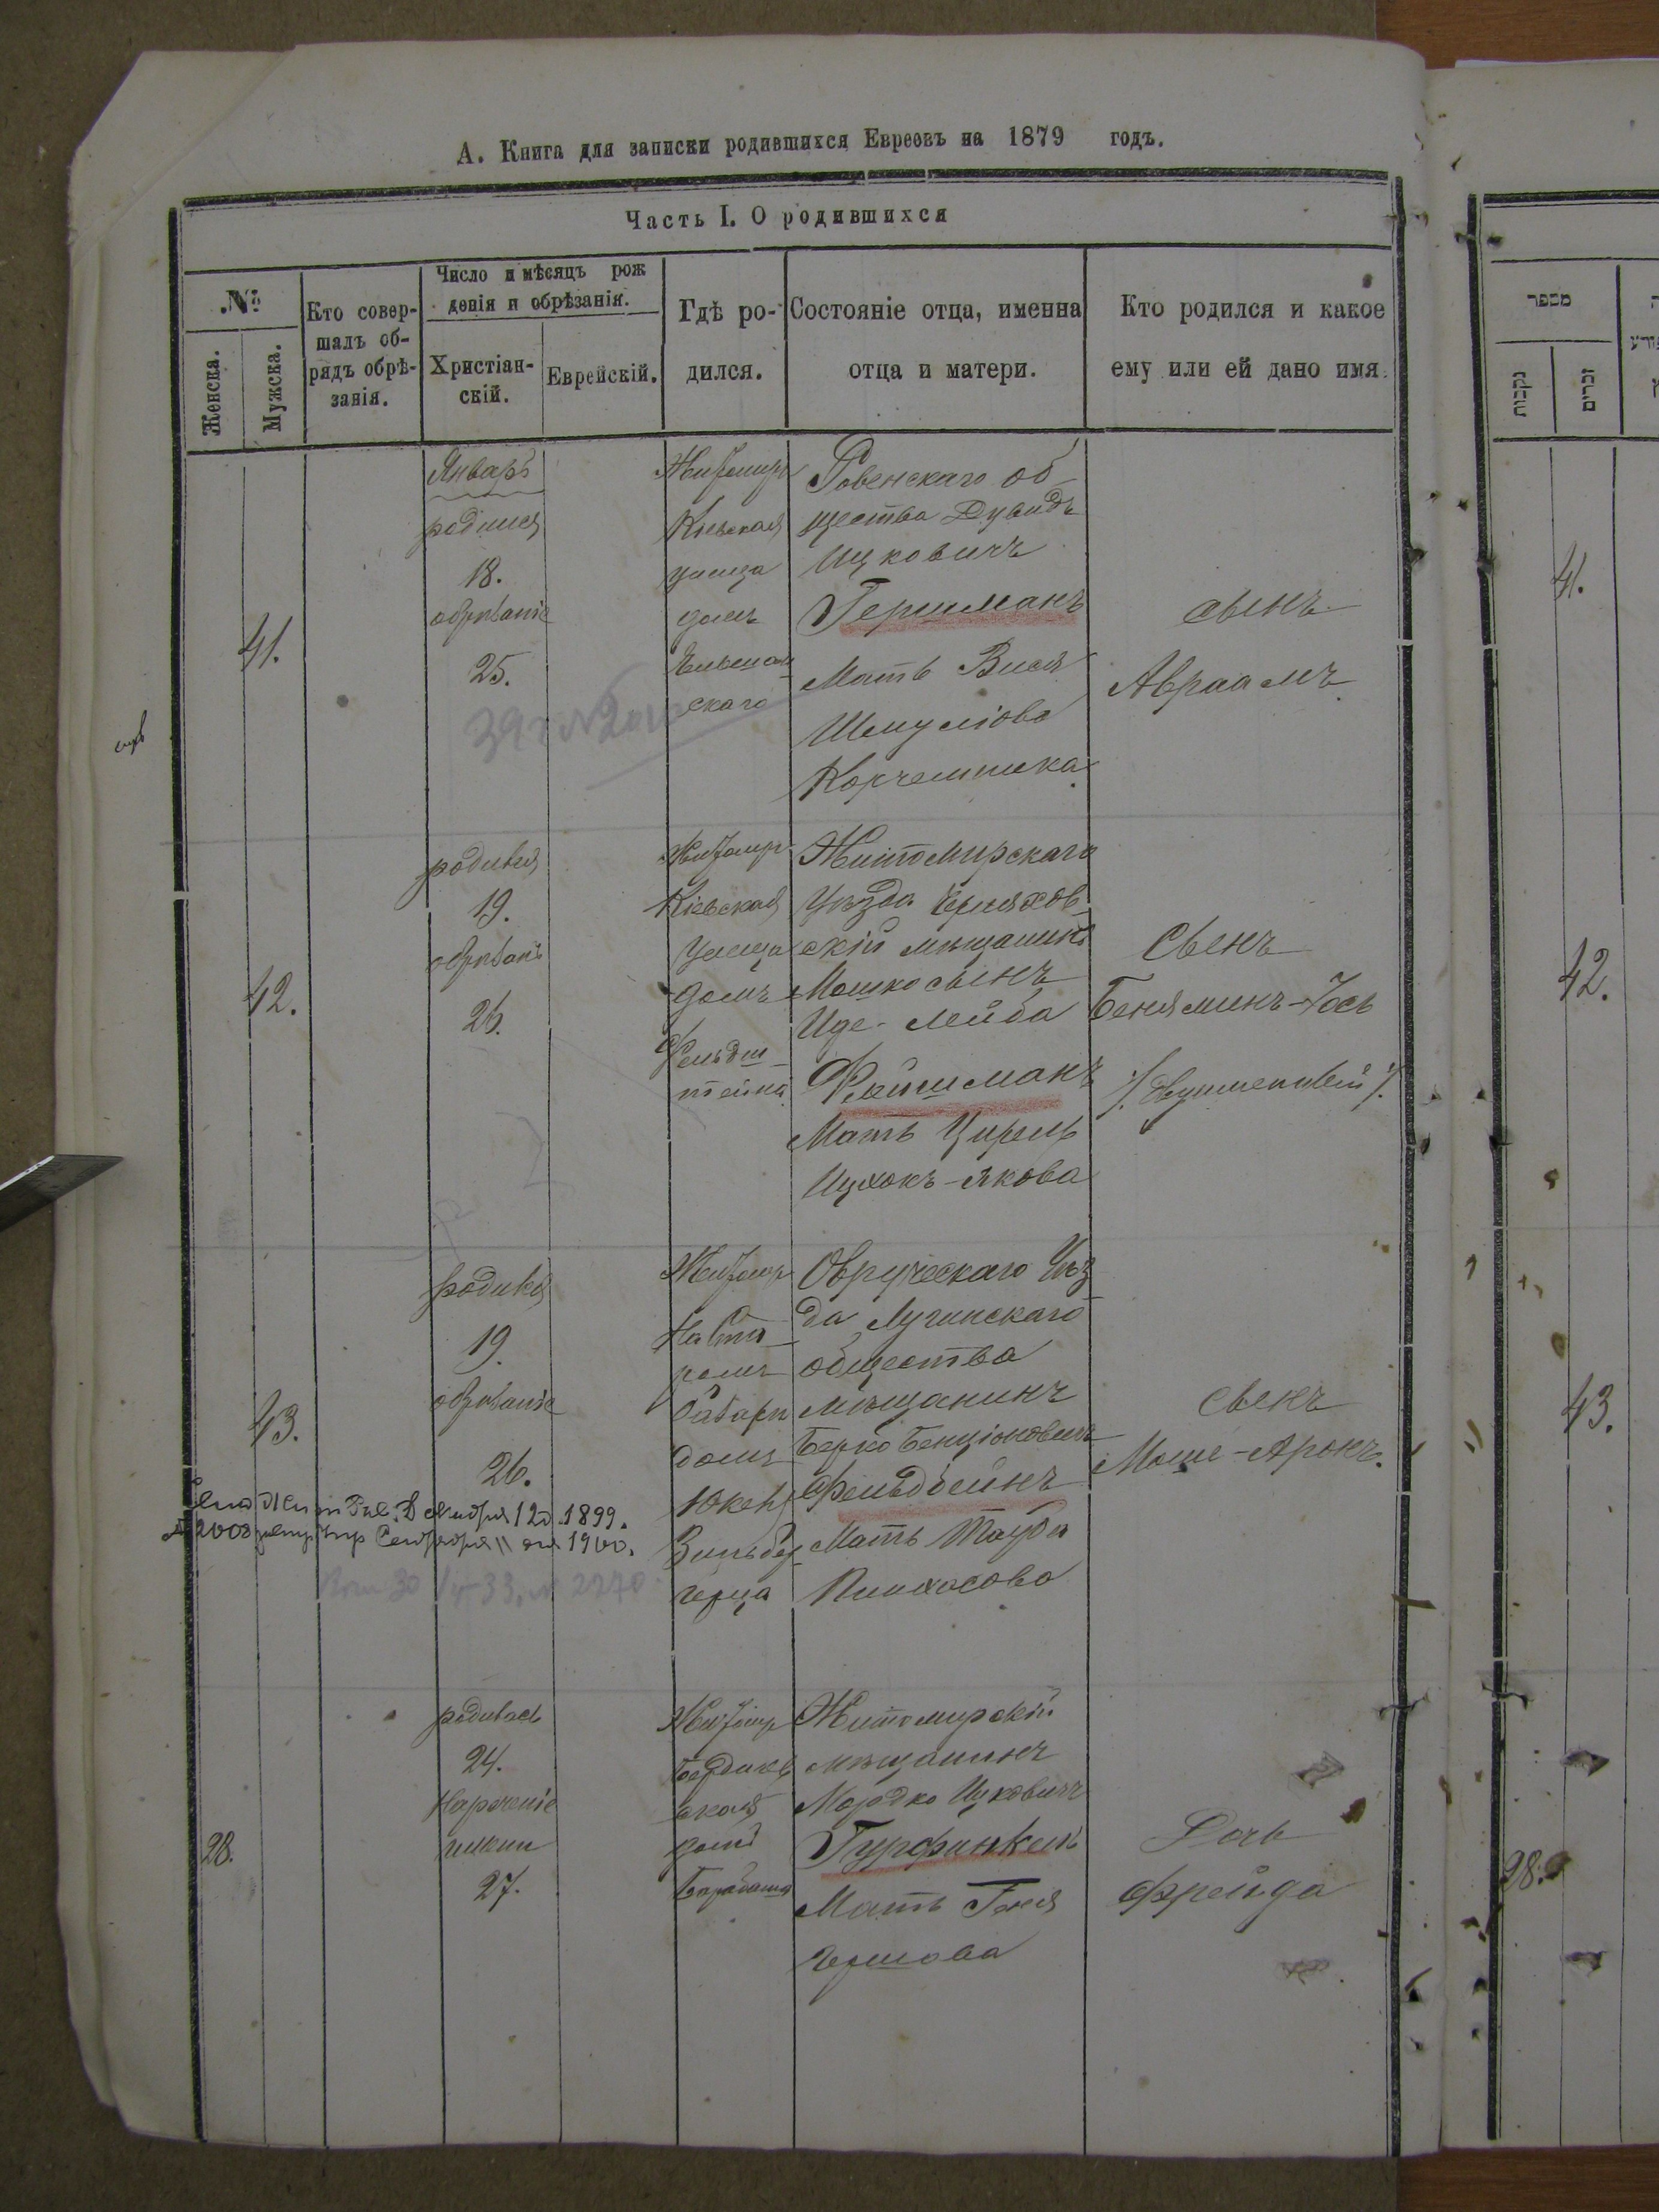 А. Книга для записки родившихся Евреовъ на 1879 годъ.
Часть I. О родившихся
№
Женска.
Мужска.
Кто совер-
шалъ об-
рядъ обрѣ-
занія.
Число и мѣсяцъ рож
денія и обрѣзанія.
Христіан-
скій.
Еврейскій.
Гдѣ ро-
дился.
Состояніе отца, именна
отца и матери.
Кто родился и какое
ему или ей дано имя.
41.
Январь
родился
18.
обрѣзаніе
25.
Житомиръ
Кіевская
улица
домъ
скаго
Ровенскаго об-
щества Дувидъ
Ицковичъ
Гершманъ
Мать Вися
Шмуліова
сынъ
Авраамъ
42.
родился
19.
обрѣзаніе
26.
Житомиръ
Кіевская
улица
домъ
Фельдш-
тейна
Житомирскаго
Уѣзда Черняхов-
скій мѣщанинъ
Мошко сынъ
Иде-Лейба
Флейшманъ
Мать
Ицхокъ-Якова
Сынъ
Беняминъ-Іось
43.
родился
19.
обрѣзаніе
26.
Житомиръ
На Ста-
ромъ
базарѣ
домъ
Овручскаго Уѣз-
да Лугинскаго
общества
мѣщанинъ
Берко Бенціоновичъ
Фельдбейнъ
Мать
Пинхосова
сынъ
Моше-Аронъ.
1899.
1900.
28.
родилась
24.
Нареченіе
имени
27.
Житомиръ
Бердичев
ская
домъ
Житомирскій
мѣщанинъ
Мордко Ицковичъ
Гурфинкель
Мать Геня
Гершова
Дочь
Фрейда
מספר
נקבות
זכרים
41.
42.
43.
28.